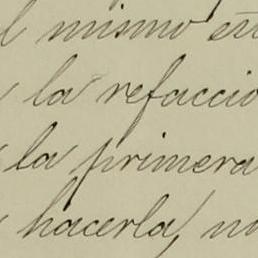 l mismo
la refaccio
la primera
hacerla, no